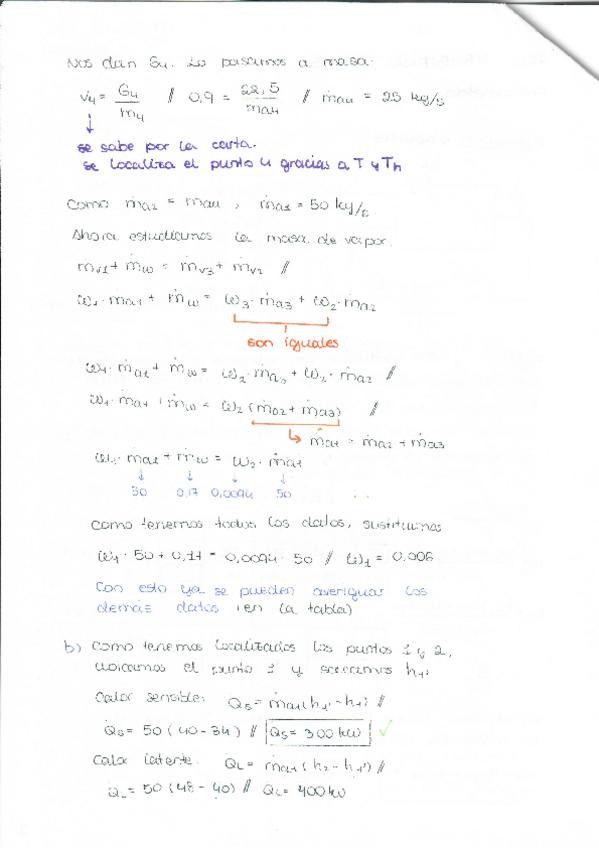 Nos dan G4. Lo pasamos a masa.
v4 = G4/m4 // 0,9 = 22,5/ma4 // ṁa4 = 25 kg/s
se sabe por la carta.
se localiza el punto 4 gracias a T y Th
Como ṁa2 = ma4, ṁa1 = 50 kg/s
Ahora estudiamos la masa de vapor.
ṁv1 + ṁw = ṁv3 + ṁv2 //
ω1·ṁa1 + ṁw = ω3·ṁa3 + ω2·ṁa2
son iguales
ω1·ṁa1 + ṁw = ω2·ṁa3 + ω2·ṁa2 //
ω1·ṁa1 + ṁw = ω2 (ṁa2 + ṁa3) //
ṁa1 = ṁa2 + ṁa3
ω1·ṁa1 + ṁw = ω2·ṁa1
50 0,17 0,0094 50
Como tenemos todos los datos, sustituimos
ω1·50 + 0,17 = 0,0094·50 // ω1 = 0,006
Con esto ya se pueden averiguar los
demás datos (en la tabla)
b) Como tenemos localizados los puntos 1 y 2,
ubicamos el punto 1' y sacamos h1'
Calor sensible: Qs = ṁa1(h1' - h1) //
Q̇s = 50 (40 - 34) // Q̇s = 300 kW ✓
Calor latente: QL = ṁa1 (h2 - h1') //
Q̇L = 50 (48 - 40) // QL = 400 kW